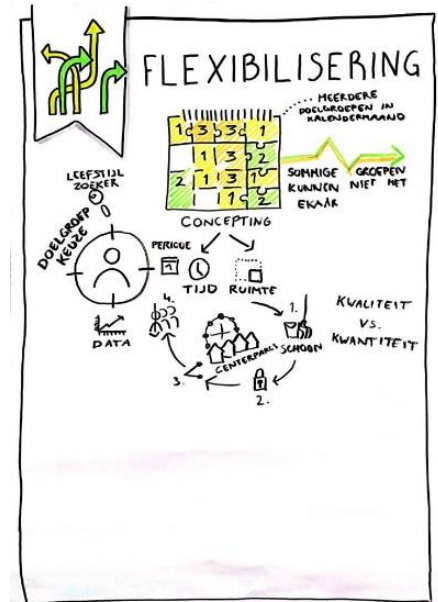 FLEXIBILISERING
MEERDERE
DOELGROEPEN IN
KALENDERMAAND
1 3 3 1
1 3 2
2 1 3 1
1 2
SOMMIGE GROEPEN
KUNNEN NIET MET
EKAAR
CONCEPTING
LEEFSTIJL
ZOEKER
DOELGROEP
KEUZE
DATA
PERIODE
1
TIJD RUIMTE
4.
1.
SCHOON
CENTERPARCS
3.
2.
KWALITEIT
VS.
KWANTITEIT